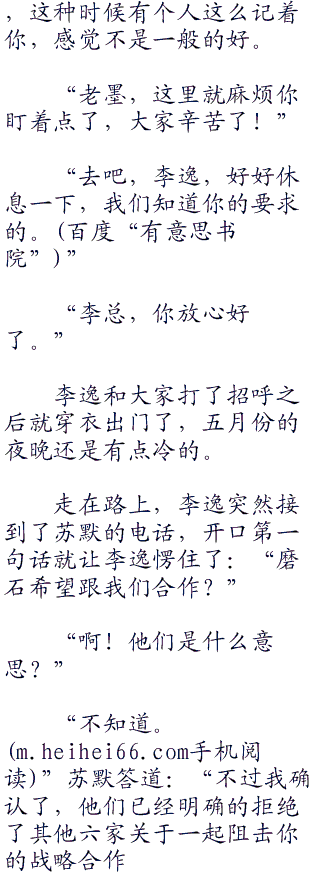 ，这种时候有个人这么记着
你，感觉不是一般的好。
“老墨，这里就麻烦你
盯着点了，大家辛苦了！”
“去吧，李逸，好好休
息一下，我们知道你的要求
的。(百度“有意思书
院”)”
“李总，你放心好
了。”
李逸和大家打了招呼之
后就穿衣出门了，五月份的
夜晚还是有点冷的。
走在路上，李逸突然接
到了苏默的电话，开口第一
句话就让李逸愣住了：“磨
石希望跟我们合作？”
“啊！他们是什么意
思？”
“不知道。
(m.heihei66.com手机阅
读)”苏默答道：“不过我确
认了，他们已经明确的拒绝
了其他六家关于一起阻击你
的战略合作